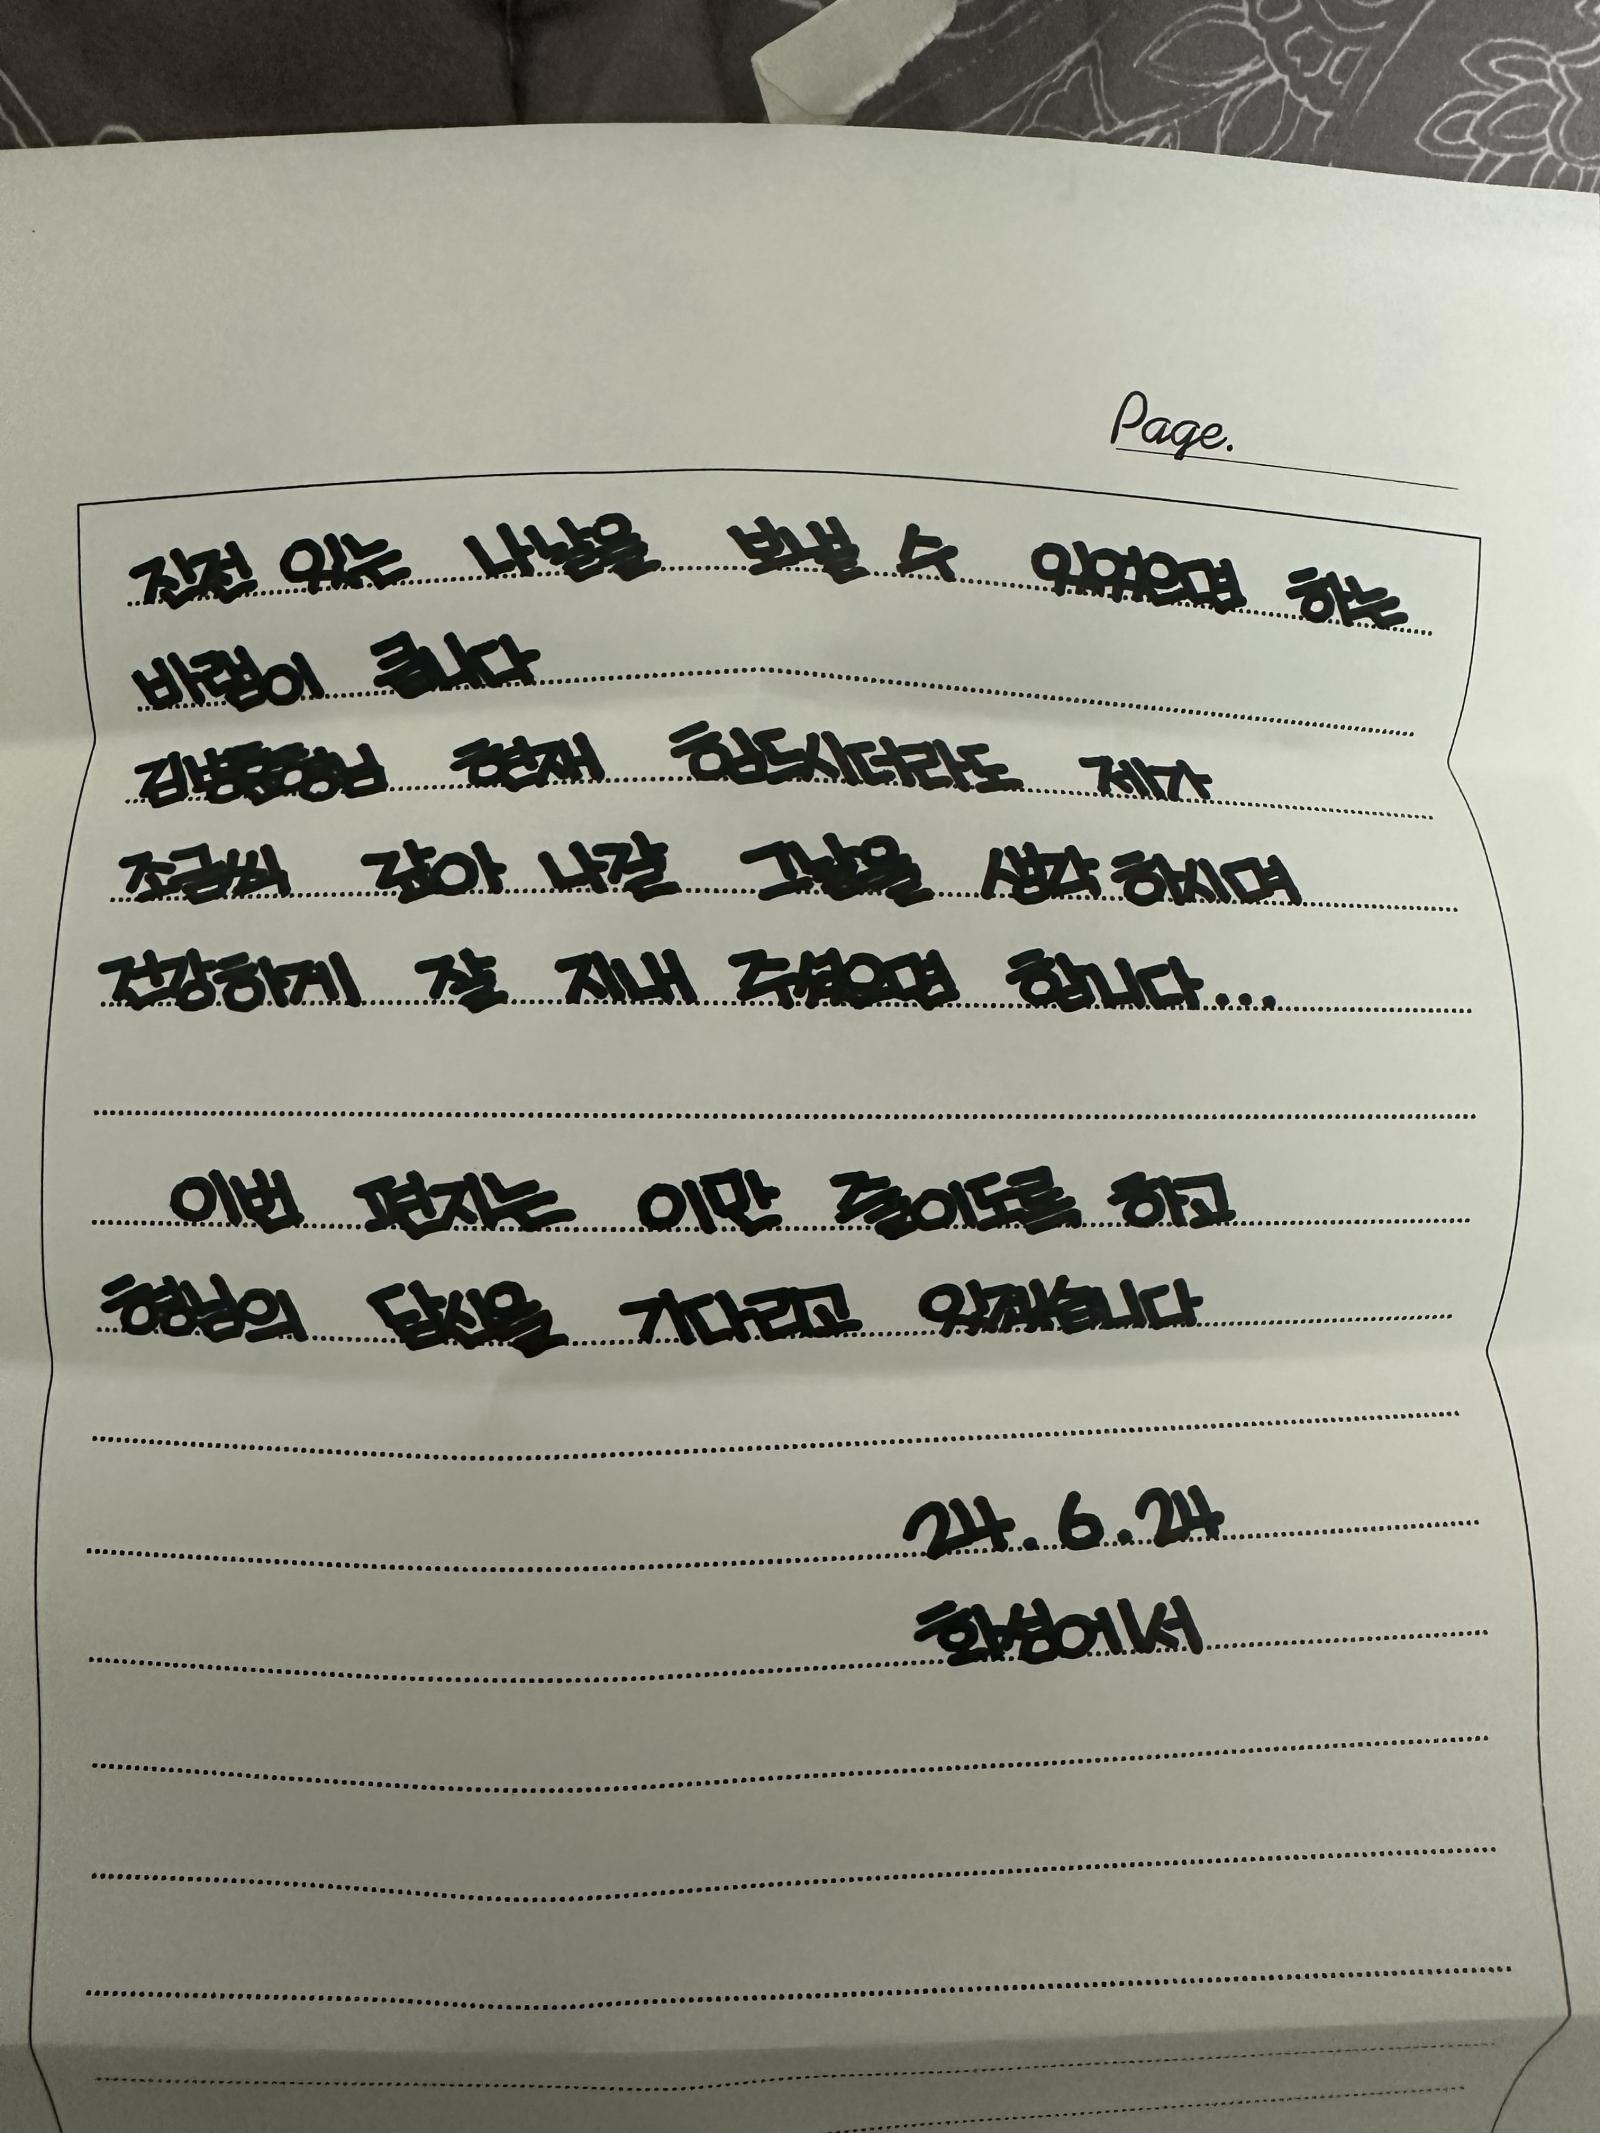 Page.
진전 있는 나날을 보낼 수 있었으면 하는
바램이 큽니다
형님 현재 힘드시더라도 제가
조금씩 갚아 나갈 그날을 생각하시며
건강하게 잘 지내 주셨으면 합니다...
이번 편지는 이만 줄이도록 하고
형님의 답신을 기다리고 있겠습니다
24.6.24
화성에서